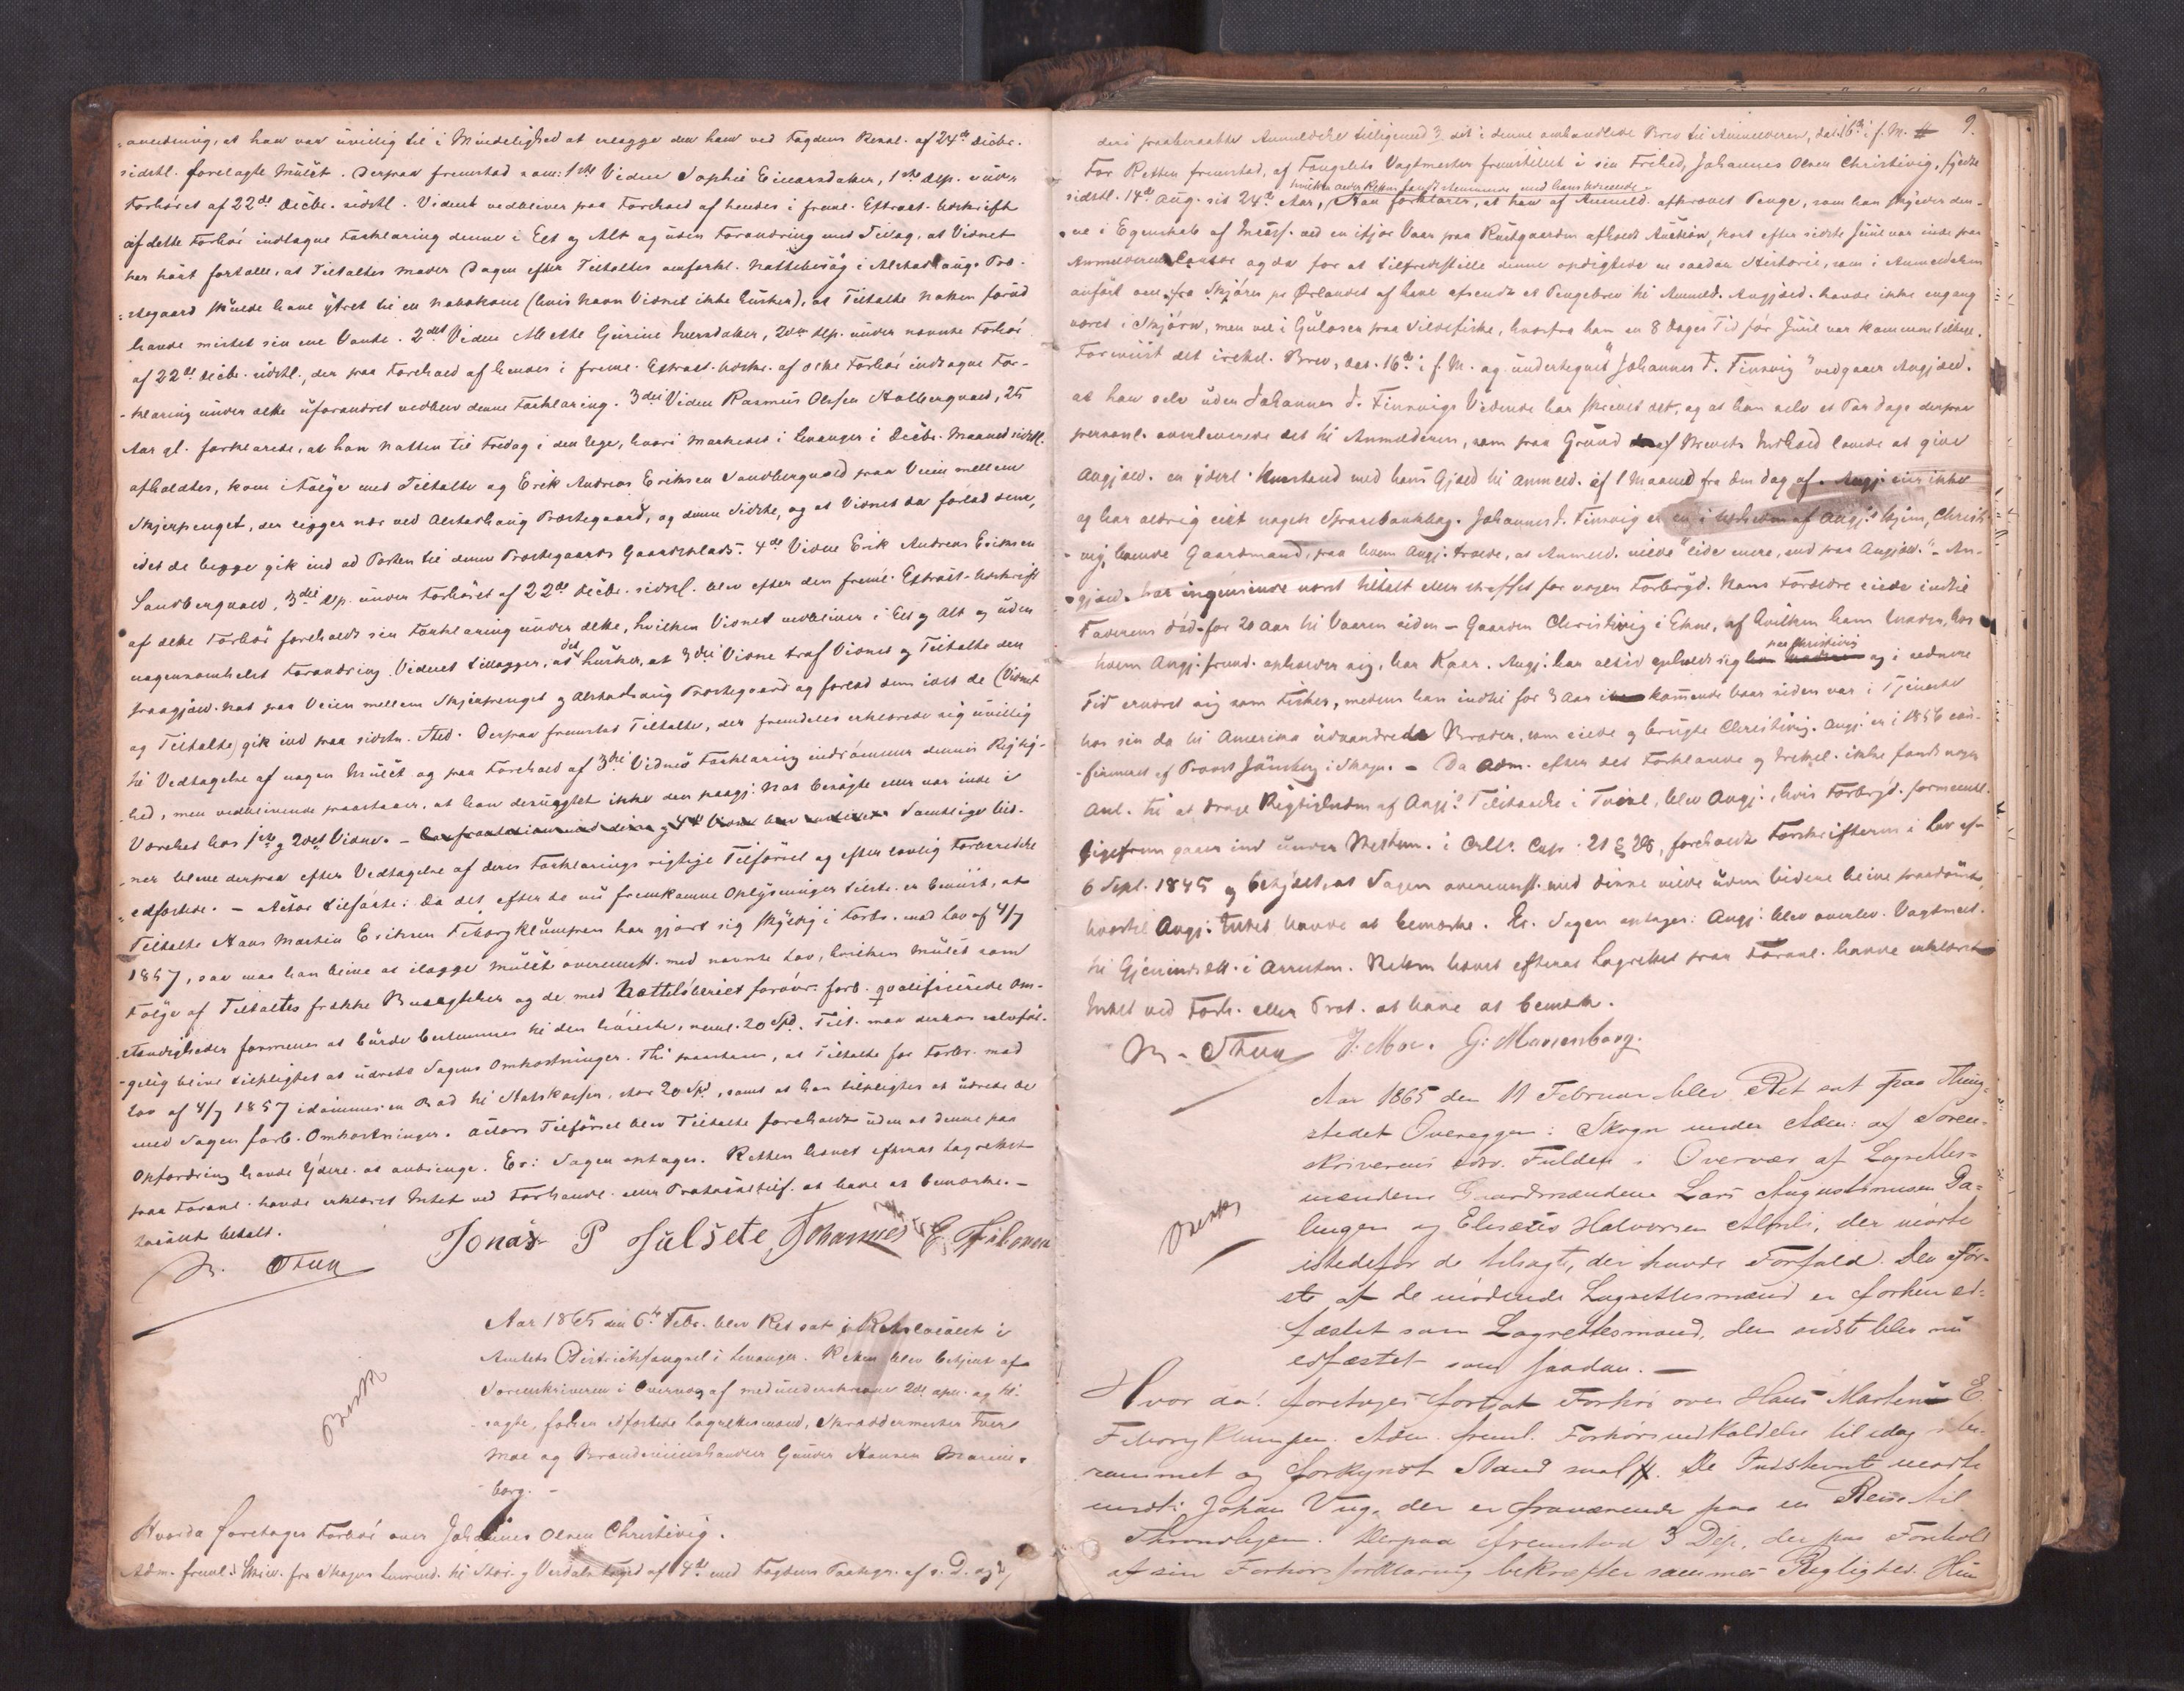 anledning, at han var uvillig til i Mindelighed at erlægge den ham ved Fogdens Resol. af 24de Decbr.
sidstl. forelagte Mulct. Derpaa fremstod som: 1ste Vidne Sophie Einarsdatter, 1ste Dep. under
Forhöret af 22de Decbr. sidstl. Vidnet vedbliver paa Forehold af hendes i freml. Extract-Udskrift
af dette Forhör indtagne Forklaring denne i Eet og Alt og uden Forandring med Tillæg, at Vidnet
har hört fortalle, at Tiltaltes Moder Dagen efter Tiltaltes omforkl. Nattebesög i Alstadhaugs Præ-
stegaard skulde have ytret til en Nabokone (hvis Navn Vidnet ikke husker), at Tiltalte Natten forud
havde mistet sin ene Vante. 2det Vidne Mette Gurine Iversdatter, 2den Dep. under nævnte Forhör
af 22de Decbr. sidstl., der paa Forehold af hendes i freml. Extract-Udskr. af dette Forhör indtagne For-
klaring under dette uforandret vedblev denne Forklaring. 3die Vidne Rasmus Olsen Halbergvald, 25
Aar gl. forklarede, at han Natten til Fredag i den Uge, hvori Markedet i Levanger i Decbr. Maaned sidstl.
afholdtes, kom i Fölge med Tiltalte og Erik Andreas Eriksen Sandbergvald paa Veien mellem
Skjerpenget, der ligger nær ved Alstadhaug Præstegaard, og denne Sidste, og at Vidnet da forlod dem,
idet de begge gik ind ad Porten til denne Præstegaards Gaardsplads. 4de Vidne Erik Andreas Eriksen
Sandbergvald, 3die Dep. under Forhöret af 22de Decbr. sidstl. blev efter den freml. Extract-Udskrift
af dette Forhör foreholdt sin Forklaring under dette, hvilken Vidnet vedbliver i Eet og Alt og uden
nogensomhelst Forandring. Vidnet tillægger, at det husker, at 3die Vidne traf Vidnet og Tiltalte den
paagjæld. Nat paa Veien mellem Skjerpenget og Alstadhaug Præstegaard og forlod dem idet de (Vidnet
og Tiltalte) gik ind paa sidstn. Sted. Derpaa fremstod Tiltalte, der fremdeles erklærede sig uvillig
til Vedtagelse af nogen Mulct og paa Forehold af 3die Vidnes Forklaring indrömmer dennes Rigtig-
hed, men vedblivende paastaaer, at han desuagtet ikke den paagj. Nat besögte eller var inde i
Værelset hos 1ste og 2det Vidne. – Samtlige Vid-
ner bleve derpaa efter Vedtagelse af deres Forklarings rigtige Tilförsel og efter lovlig Forberedelse
edfæstede. – Actor tilförte: Da det efter de nu fremkomne Oplysninger tilstr. er beviist, at
Tiltalte Hans Martin Eriksen Fiborgklumpen har gjort sig skyldig i Forbr. mod Lov af 4/7
1857, saa maa han blive at ilægge Mulct overeenst. med nævnte Lov, hvilken Mulct som
Fölge af Tiltaltes frække Benægtelser og de med Natteløberiet forövr. forb. qvalificerede Om-
stændigheder formenes at burde bestemmes til den höieste, neml. 20 Spd. Tilt. maa derhos selvföl-
gelig blive tilpligtet at udrede Sagens Omkostninger. Thi paastaaes, at Tiltalte for Forbr. mod
Lov af 4/7 1857 idömmes en Bod til Statskassen, stor 20 Spd, samt at han tilpligtes at udrede de
med Sagen forb. Omkostninger. Actors Tilförsel blev Tiltalte foreholdt uden at denne paa
Opfordring havde Ydere. at anbringe. Er: Sagen optages. Retten hævet efterat Lagrettet
paa Foranl. havde erklæret Intet ved Forhandl. eller Protocoltilf. at have at bemærke. –
Localet betalt.
Jonas P Julsete Johannes E. Fiborg
Aar 1865 den 6te Febr. blev Ret sat i Retslocalet i
Amtets Districtsfængsel i Levanger. Retten blev betjent af
Sorenskriveren i Overvær af medunderskrevne 2de opn. og til-
sagte, forhen edfæstede Lagrettesmænd, Skræddermester Iver
Moe og Brændeviinshandler Gunder Hansen Marien-
borg. –
Hvorda foretages Forhör over Johannes Olsen Christivig.
Adm. freml. Skriv. fra Skogns Lensmd. til Stör. og Verdals Foged af 4de med Fogdens Paategn. af s. D. og
9.
deri paaberaabte Anmeldelse tilligemed det i denne omhandlede Brev til Anmelderen, dat. 16de i f. M.
For Retten fremstod, af Fængslets Vagtmester fremstillet i sin Frihed, Johannes Olsen Christivig, fyldte
sidstl. 14de Aug. sit 24de Aar,
hvilken Alder Retten fandt stemmende med hans Udseende.
Han forklarer, at han af Anmeld. afkrævet Penge, som han skylder den-
ne i Egenskab af Incass. ved en ifjor Vaar paa Rustgaarden afholdt Auction, kort efter sidste Juul var inde paa
Anmelderens Contor og da for at tilfredsstille denne opdigtede en saadan Historie, som i Anmeldelsen
anfört om fra Skjörn pr Ørlandet at have afsendt et Pengebrev til Anmeld. Angjæld. havde ikke engang
været i Skjörn, men vel i Gulosen paa Sildefiske, hvorfra han en 8 Dages Tid för Juul var kommen tilbage.
Foreviist det irettel. Brev, dat. 16de i f. M. og undertegnet "Johannes J. Finsvig" vedgaaer Angjæld.
at han selv uden Johannes J. Finsvigs Vidende har skrevet det, og at han selv et Par Dage derpaa
personl. overleverede det til Anmelderen, som paa Grund af Brevets Indhold lovede at give
Angjæld. en yderl. Henstand med hans Gjæld til Anmeld. af 1 Maaned fra den Dag af. Angj. eier ikke
og har aldrig eiet nogen Sparebankbog. Johannes J. Finsvig er en i Nærheden af Angj.s Hjem, Christi-
vig, boende Gaardmand, paa hvem Angj. troede, at Anmeld. vilde "lide mere, end paa Angjæld." – An-
gjæld. har ingensinde været tiltalt eller straffet for nogen Forbryd. Hans Forældre eiede indtil
Faderens Död for 20 Aar til Vaaren siden – Gaarden Christivig i Ekne, af hvilken hans Moder, hos
hvem Angj. fremd. opholder sig, har Kaar. Angj. har altid opholdt sig paa Christivig og i sednere
Tid ernæret sig som Fisker, medens han indtil for 3 Aar kommende Vaar siden var i Tjeneste
hos sin da til Amerika udvandrede Broder, som eiede og brugte Christivig. Angj. er i 1856 con-
firmeret af Provst Jönsberg i Skogn. – Da Adm. efter det Forklarede og Irettel. ikke fandt nogen
Anl. til at drage Rigtigheden af Angj.s Tilstaaelse i Tvivl, blev Angj., hvis Forbryd. formeentl.
ligefrem gaaer ind under Bestem. i Crll. Cap. 21 §, foreholdt Forskrifterne i Lov af
6 Sept. 1845 og betydet, at Sagen overeenst. med denne vilde uden videre blive paadömt,
hvortil Angj. Intet havde at bemærke. Er. Sagen optages: Angj. blev overlev. Vagtmest.
til Gjenindsætt. i Arresten. Retten hævet efterat Lagrettet paa Foranl. havde erklæret
Intet ved Forh. eller Prot. at have at bemærk.
I. Moe. G. Marienborg.
Aar 1865 den 11 Februar blev Ret sat paa Thing-
stedet Övereggen i Skogn under Adm: af Soren-
skriverens edsv. Fuldm. i Overvær af Lagrettes-
mændene Gaardmændene Lars Augustinusen Da-
lingen og Elisæus Halvorsen Almli, der mödte
istedetfor de tilsagte, der havde Forfald. Den För-
ste af de mödende Lagrettesmænd er forhen ed-
fæstet som Lagrettesmand, den sidste blev nu
edfæstet som saadan. –
Hvor da: foretoges fortsat Forhör over Hans Martin E.
Fiborgklumpen. Adm. freml. Forhörsindkaldelse til idag
rammet og forkyndt Stand mal. De Indstevnte mödte
undt: Johan Vug, der er fraværende paa en Reise til
Throndhjem. Derpaa fremstod 3 Dep, der paa Forehold
af sin Forhörsforklaring bekræfter sammes Rigtighed. Hun